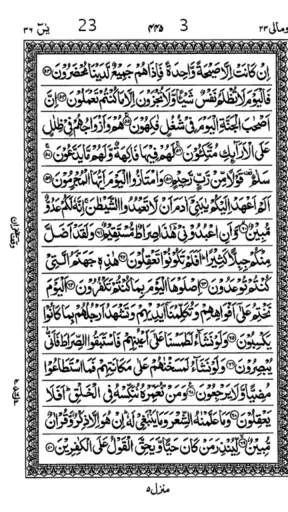 ومالی ۲۳ 3 ۴۴۵ 23 یٰسٓ ۳۶
اِنْ كَانَتْ اِلَّا صَيْحَةً وَّاحِدَةً فَاِذَا هُمْ جَمِيْعٌ لَّدَيْنَا مُحْضَرُوْنَ ﴿۵۳﴾
فَالْيَوْمَ لَا تُظْلَمُ نَفْسٌ شَيْـًٔا وَّلَا تُجْزَوْنَ اِلَّا مَا كُنْتُمْ تَعْمَلُوْنَ ﴿۵۴﴾ اِنَّ
اَصْحٰبَ الْجَنَّةِ الْيَوْمَ فِيْ شُغُلٍ فٰكِهُوْنَ ﴿۵۵﴾ هُمْ وَاَزْوَاجُهُمْ فِيْ ظِلٰلٍ
عَلَى الْاَرَآئِكِ مُتَّكِـُٔوْنَ ﴿۵۶﴾ لَهُمْ فِيْهَا فَاكِهَةٌ وَّلَهُمْ مَّا يَدَّعُوْنَ ﴿۵۷﴾
سَلٰمٌ قَوْلًا مِّنْ رَّبٍّ رَّحِيْمٍ ﴿۵۸﴾ وَامْتَازُوا الْيَوْمَ اَيُّهَا الْمُجْرِمُوْنَ ﴿۵۹﴾
اَلَمْ اَعْهَدْ اِلَيْكُمْ يٰبَنِيْٓ اٰدَمَ اَنْ لَّا تَعْبُدُوا الشَّيْطٰنَ اِنَّهٗ لَكُمْ عَدُوٌّ
مُّبِيْنٌ ﴿۶۰﴾ وَّاَنِ اعْبُدُوْنِيْ هٰذَا صِرَاطٌ مُّسْتَقِيْمٌ ﴿۶۱﴾ وَلَقَدْ اَضَلَّ
مِنْكُمْ جِبِلًّا كَثِيْرًا اَفَلَمْ تَكُوْنُوْا تَعْقِلُوْنَ ﴿۶۲﴾ هٰذِهٖ جَهَنَّمُ الَّتِيْ
كُنْتُمْ تُوْعَدُوْنَ ﴿۶۳﴾ اِصْلَوْهَا الْيَوْمَ بِمَا كُنْتُمْ تَكْفُرُوْنَ ﴿۶۴﴾ اَلْيَوْمَ
نَخْتِمُ عَلٰٓى اَفْوَاهِهِمْ وَتُكَلِّمُنَآ اَيْدِيْهِمْ وَتَشْهَدُ اَرْجُلُهُمْ بِمَا كَانُوْا
يَكْسِبُوْنَ ﴿۶۵﴾ وَلَوْ نَشَآءُ لَطَمَسْنَا عَلٰٓى اَعْيُنِهِمْ فَاسْتَبَقُوا الصِّرَاطَ فَاَنّٰى
يُبْصِرُوْنَ ﴿۶۶﴾ وَلَوْ نَشَآءُ لَمَسَخْنٰهُمْ عَلٰى مَكَانَتِهِمْ فَمَا اسْتَطَاعُوْا
مُضِيًّا وَّلَا يَرْجِعُوْنَ ﴿۶۷﴾ وَمَنْ نُّعَمِّرْهُ نُنَكِّسْهُ فِي الْخَلْقِ اَفَلَا
يَعْقِلُوْنَ ﴿۶۸﴾ وَمَا عَلَّمْنٰهُ الشِّعْرَ وَمَا يَنْۢبَغِيْ لَهٗ اِنْ هُوَ اِلَّا ذِكْرٌ وَّقُرْاٰنٌ
مُّبِيْنٌ ﴿۶۹﴾ لِّيُنْذِرَ مَنْ كَانَ حَيًّا وَّيَحِقَّ الْقَوْلُ عَلَى الْكٰفِرِيْنَ ﴿۷۰﴾
منزل ۵